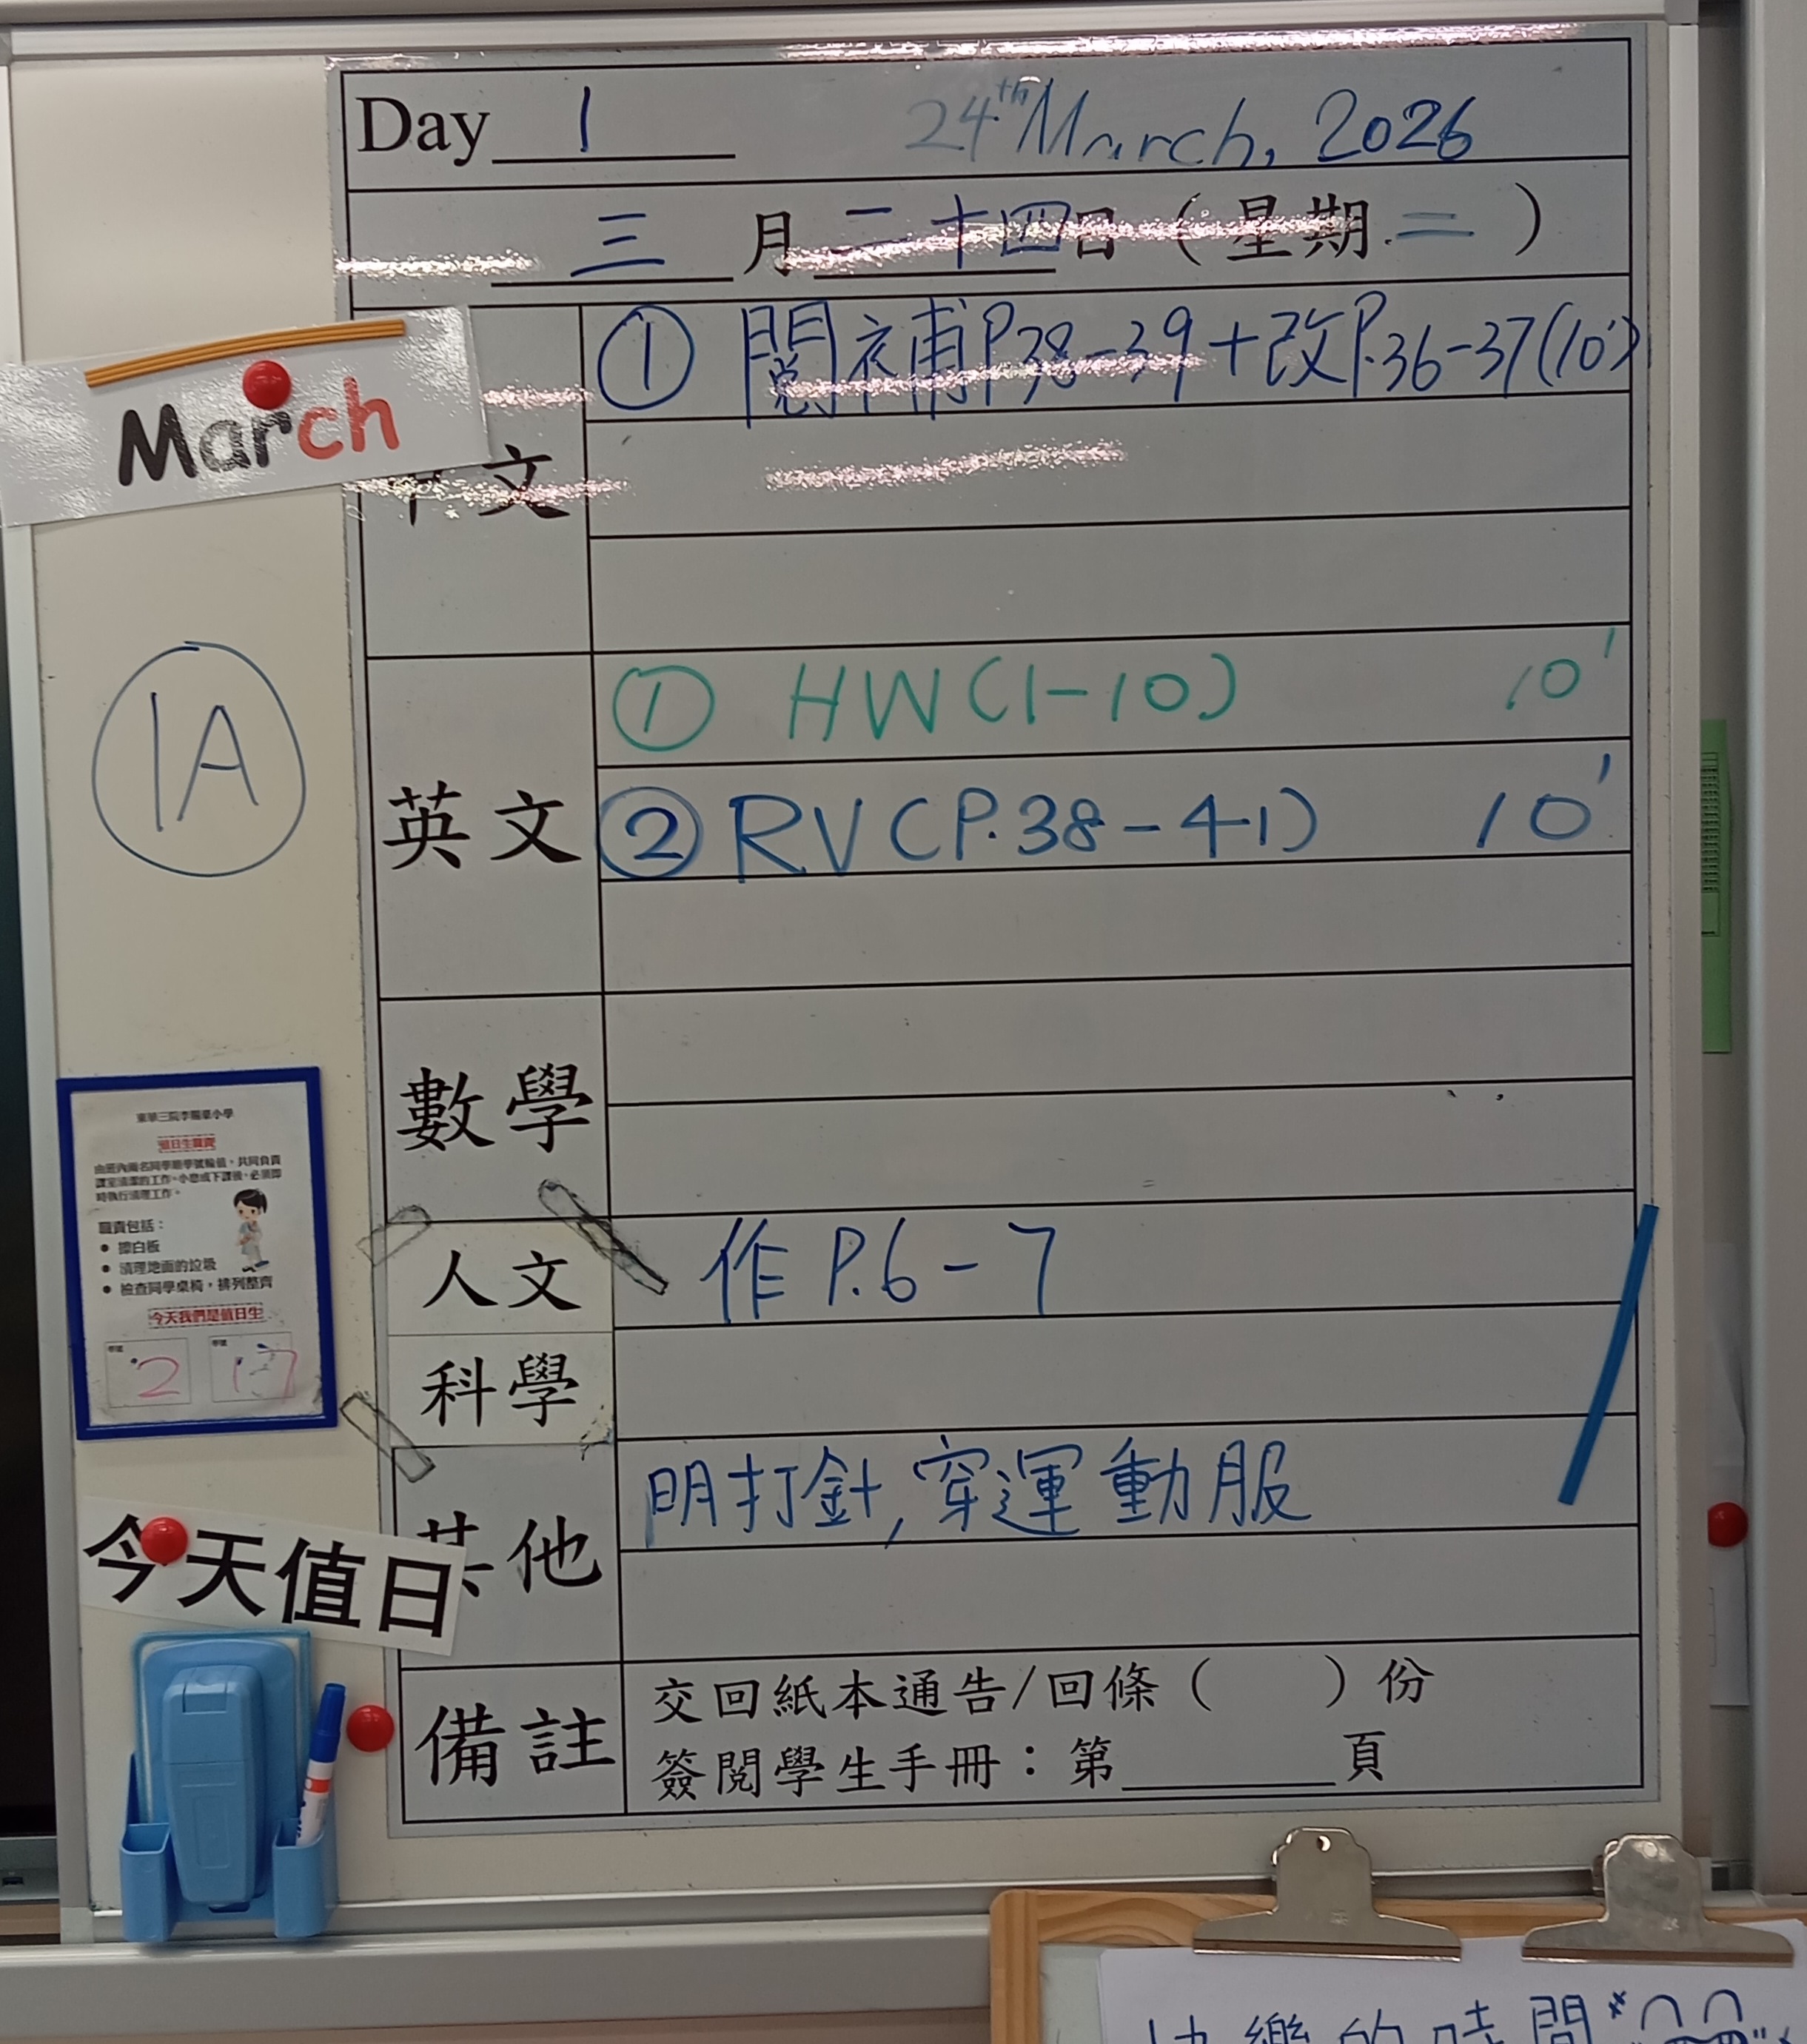 Day 1 24th March, 2026
三月二十四日（星期二）
March
中文
① 閱補P.38-39+改P.36-37(10')
1A
英文
① HW(1-10) 10'
② RV(P.38-41) 10'
數學
人文 作P.6-7
科學
其他 明打針,穿運動服
備註
交回紙本通告/回條（ ）份
簽閱學生手冊：第____頁
值日生職責
由班內兩名同學順學號輪值，共同負責
課室清潔的工作。小息或下課後，必須即
時執行清理工作。
職責包括：
● 擦白板
● 清理地面的垃圾
● 檢查同學桌椅，排列整齊
今天我們是值日生
學號 2 學號 17
今天值日
快樂的時間